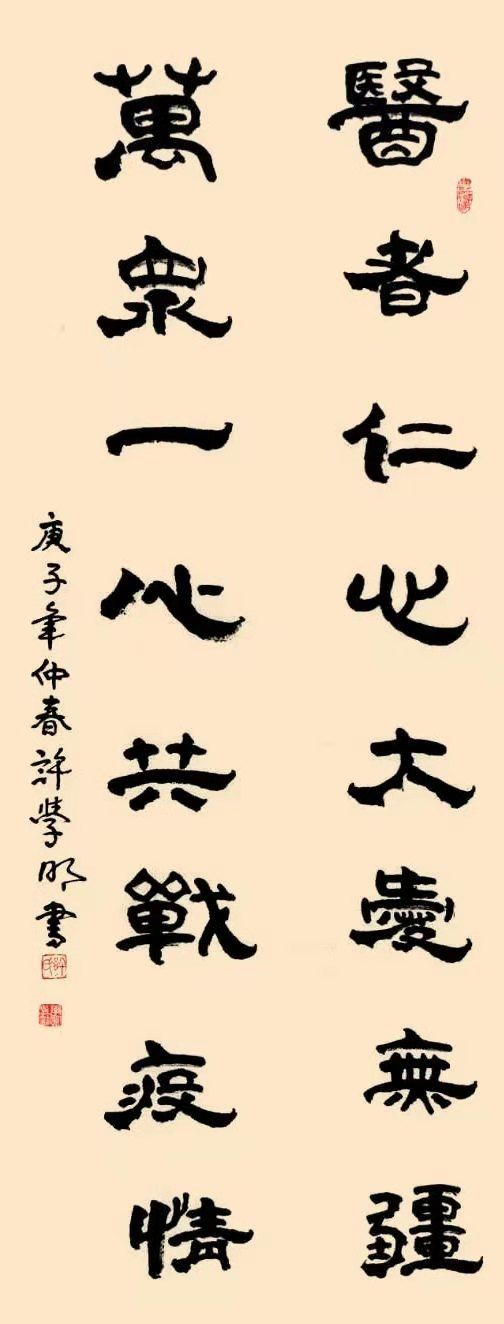 醫者仁心大愛無疆
萬眾一心共戰疫情
庚子年仲春許學明書